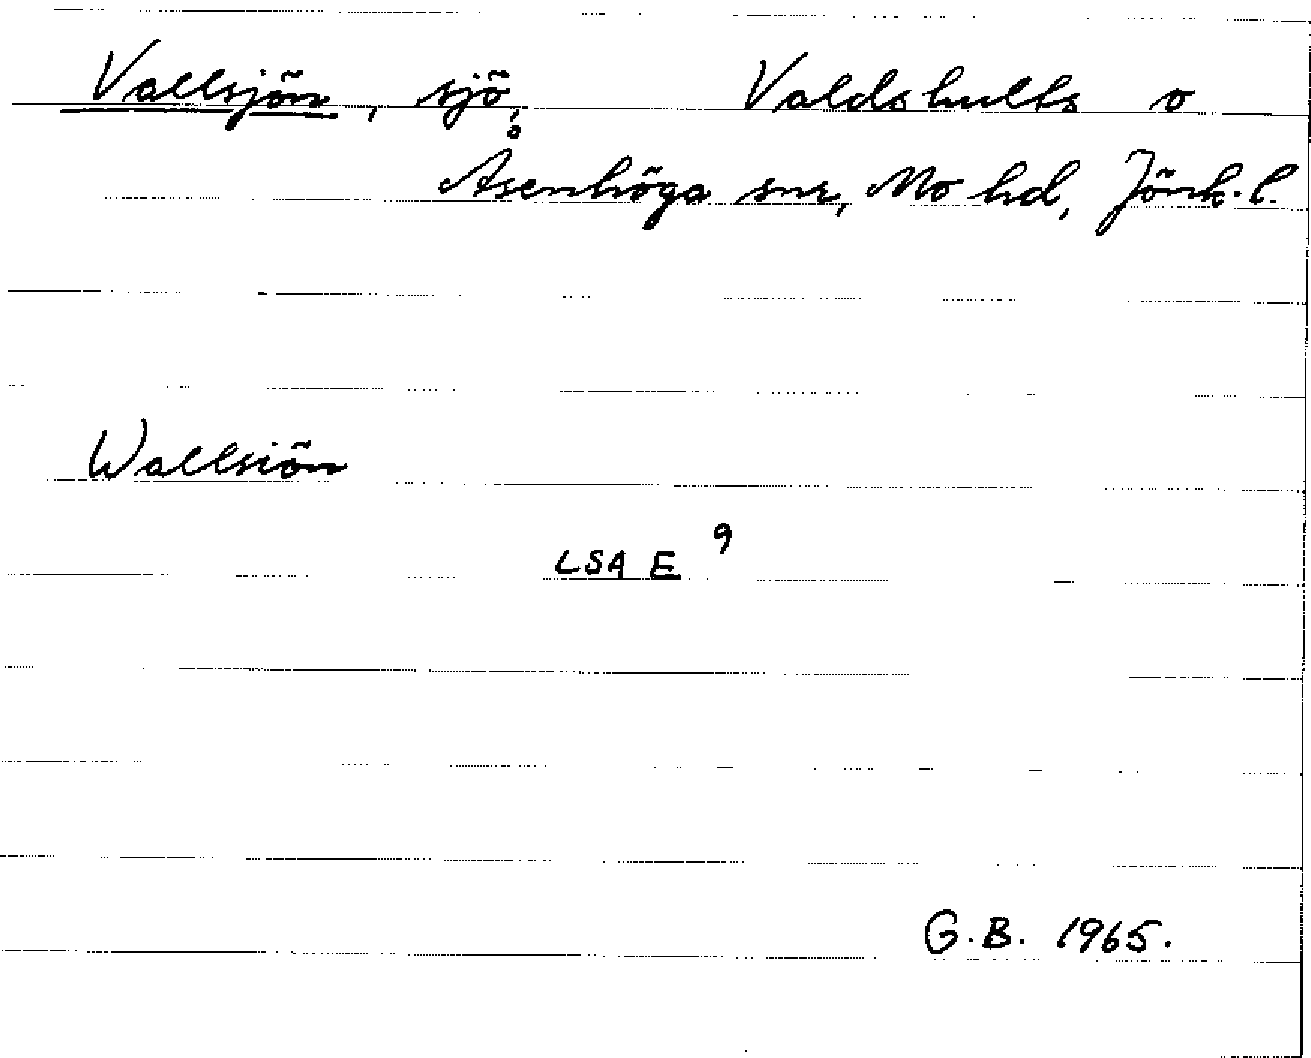 Vallsjön, sjö, Valdshults o
Åsenhöga snr, Mo hd, Jönk. l.
Wallsiön
LSA E 9
G.B. 1965.